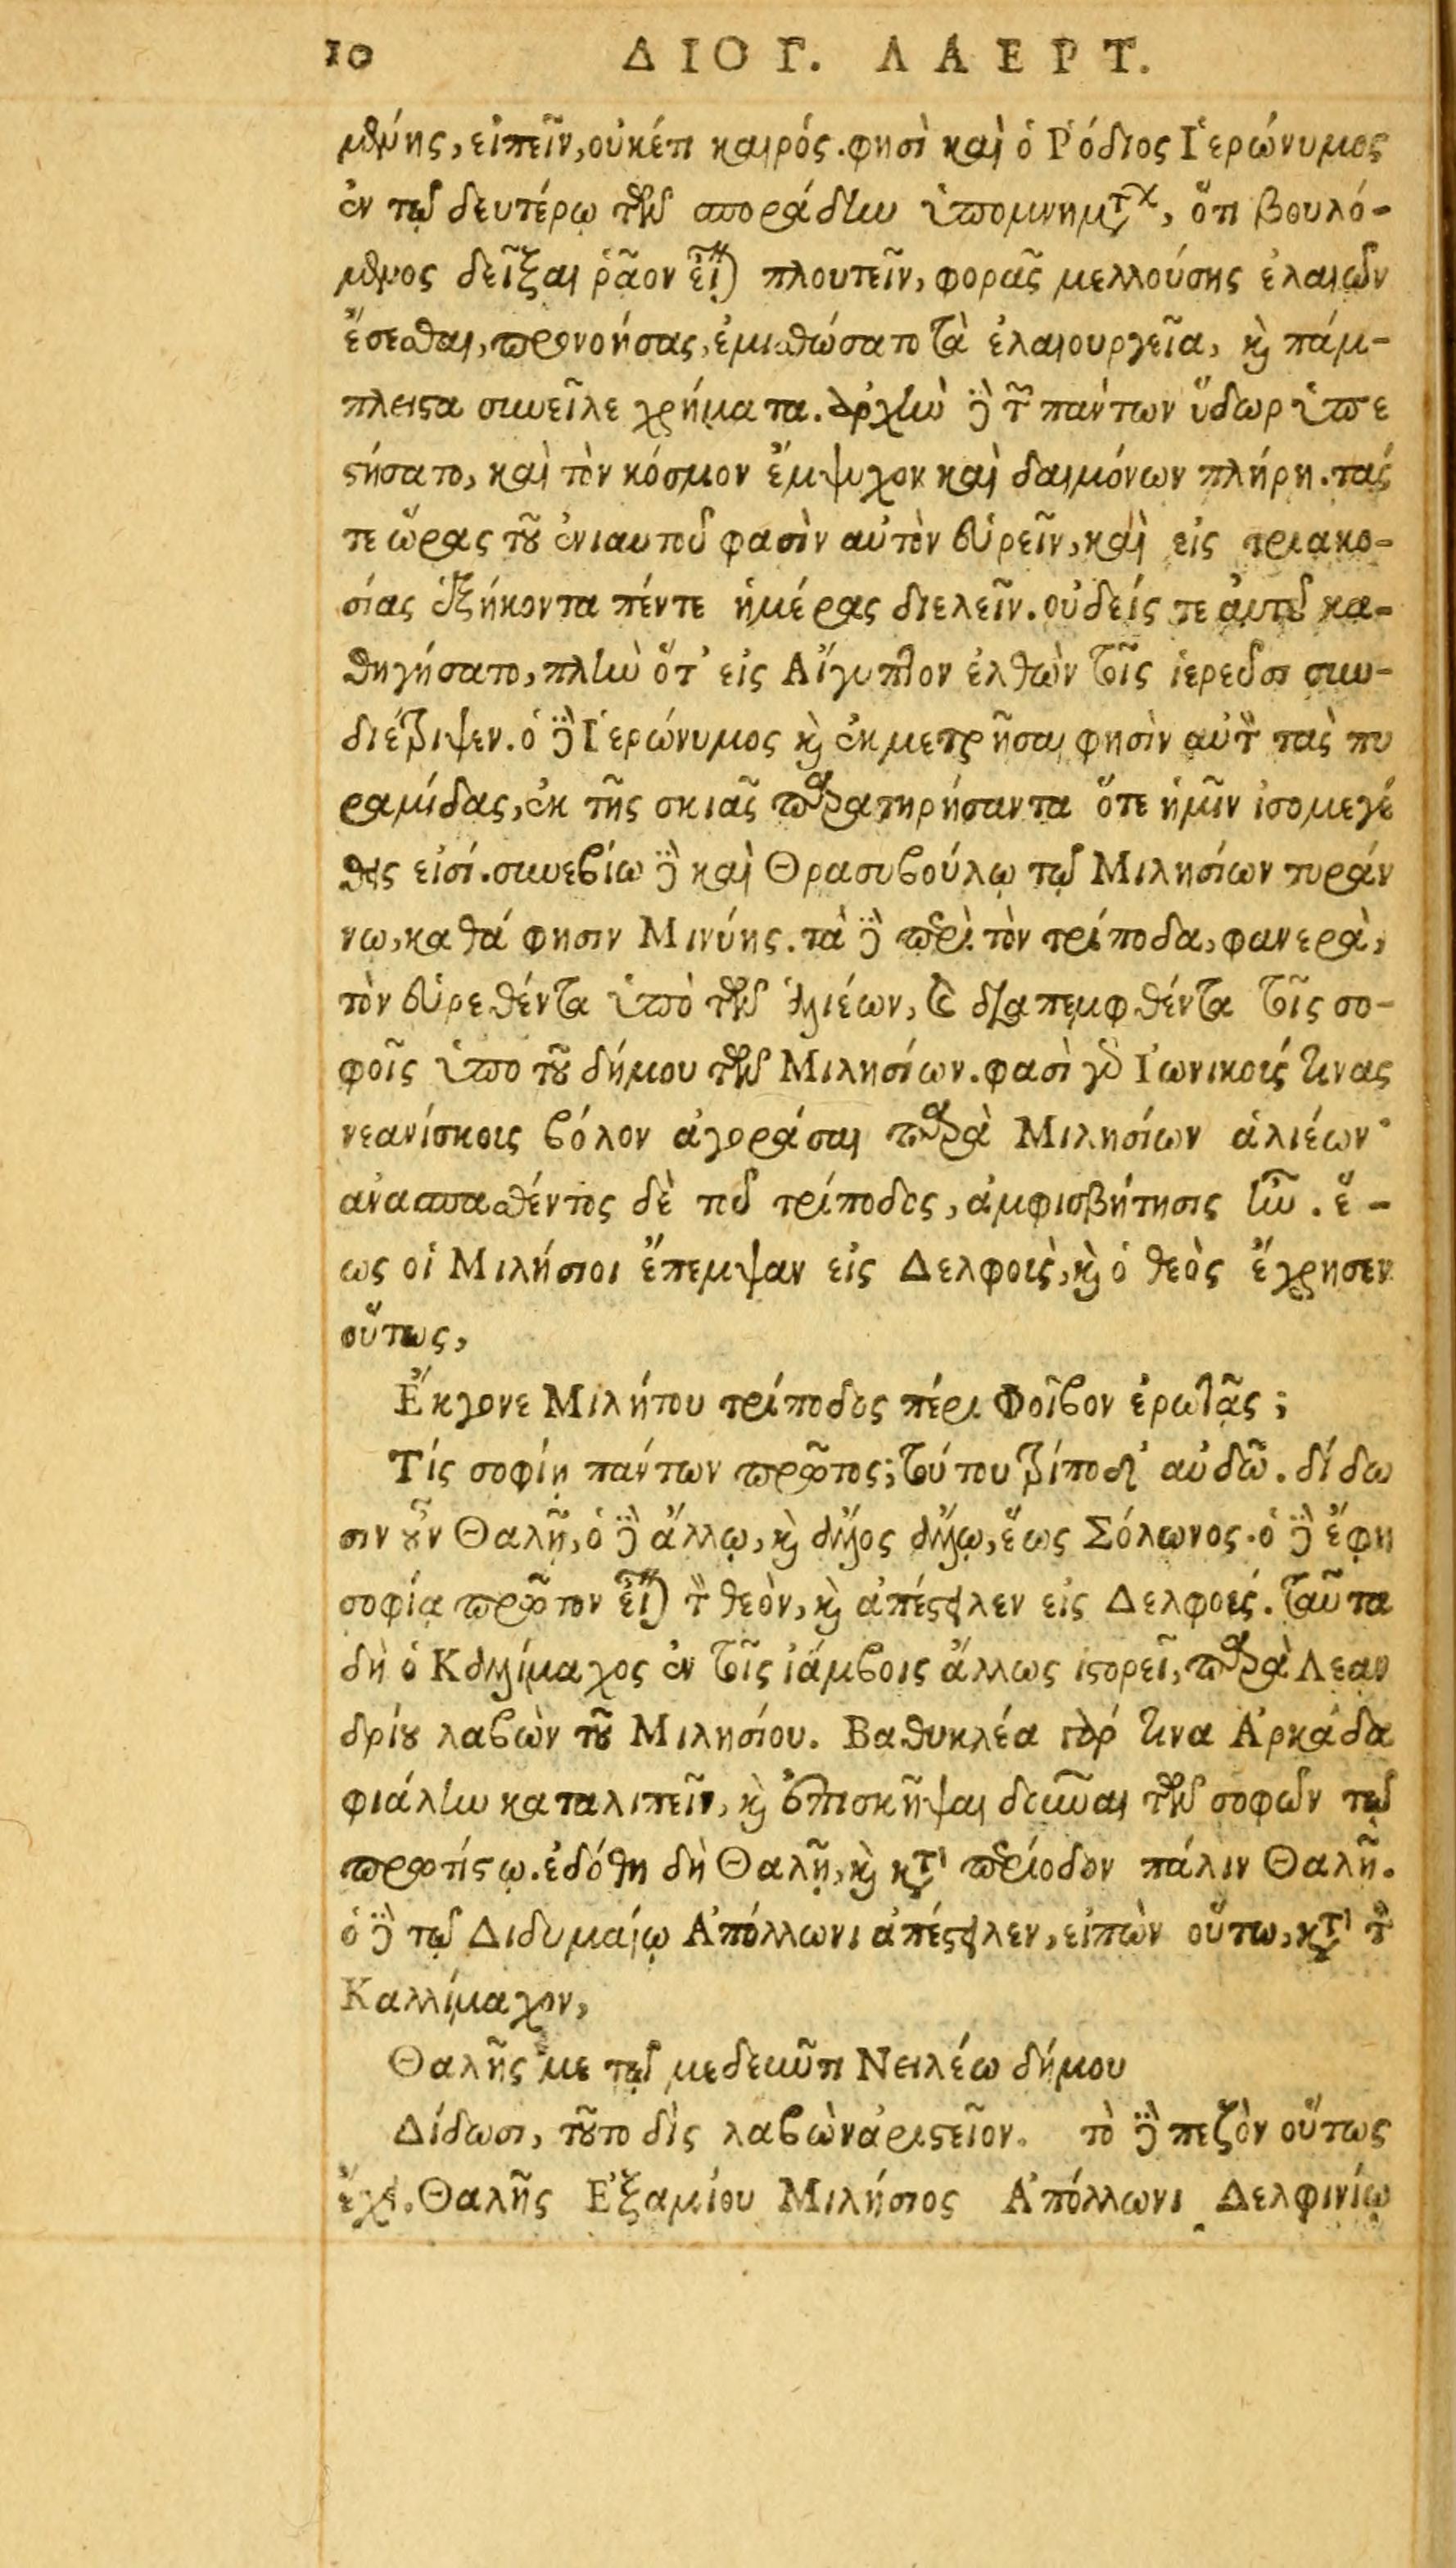 10 ΔΙΟΓ. ΛΑΕΡΤ.
μένης, εἰπεῖν, οὐκέτι καιρός. φησὶ καὶ ὁ Ῥόδιος Ἱερώνυμος
ἐν τῷ δευτέρῳ τῶν σποράδην ὑπομνημάτων, ὅτι βουλό-
μενος δεῖξαι ῥᾷον εἶναι πλουτεῖν, φορᾶς μελλούσης ἐλαιῶν
ἔσεσθαι, προνοήσας, ἐμισθώσατο τὰ ἐλαιουργεῖα, καὶ πάμ-
πλειστα συνεῖλε χρήματα. ἀρχὴν δὲ τῶν πάντων ὕδωρ ὑπε
στήσατο, καὶ τὸν κόσμον ἔμψυχον καὶ δαιμόνων πλήρη. τάς
τε ὥρας τοῦ ἐνιαυτοῦ φασὶν αὐτὸν εὑρεῖν, καὶ εἰς τριακο-
σίας ἑξήκοντα πέντε ἡμέρας διελεῖν. οὐδείς τε αὐτοῦ κα-
θηγήσατο, πλὴν ὅτ' εἰς Αἴγυπτον ἐλθὼν τοῖς ἱερεῦσι συν-
διέτριψεν. ὁ δὲ Ἱερώνυμος καὶ ἐκμετρῆσαι φησὶν αὐτὸν τὰς πυ
ραμίδας, ἐκ τῆς σκιᾶς παρατηρήσαντα ὅτε ἡμῖν ἰσομεγέ
θεις εἰσί. συνεβίω δὲ καὶ Θρασυβούλῳ τῷ Μιλησίων τυράν
νῳ, καθά φησιν Μινύης. τὰ δὲ περὶ τὸν τρίποδα, φανερὰ,
τὸν εὑρεθέντα ὑπὸ τῶν ἁλιέων, καὶ διαπεμφθέντα τοῖς σο-
φοῖς ὑπο τοῦ δήμου τῶν Μιλησίων. φασὶ γὰρ Ἰωνικούς τινας
νεανίσκους βόλον ἀγοράσαι παρὰ Μιλησίων ἁλιέων·
ἀνασπασθέντος δὲ τοῦ τρίποδος, ἀμφισβήτησις ἦν. ἕ-
ως οἱ Μιλήσιοι ἔπεμψαν εἰς Δελφοὺς, καὶ ὁ θεὸς ἔχρησεν
οὕτως,
Ἔκγονε Μιλήτου τρίποδος πέρι Φοῖβον ἐρωτᾷς;
Τίς σοφίῃ πάντων πρῶτος; τούτου τρίποδ' αὐδῶ. δίδω
σιν οὖν Θαλῇ, ὁ δὲ ἄλλῳ, καὶ ἄλλος ἄλλῳ, ἕως Σόλωνος. ὁ δὲ ἔφη
σοφίᾳ πρῶτον εἶναι τὸν θεὸν, καὶ ἀπέστειλεν εἰς Δελφούς. ταῦτα
δὴ ὁ Καλλίμαχος ἐν τοῖς ἰάμβοις ἄλλως ἱστορεῖ, παρὰ Λεαν
δρίου λαβὼν τοῦ Μιλησίου. Βαθυκλέα γάρ τινα Ἀρκάδα
φιάλην καταλιπεῖν, καὶ ἐπισκῆψαι δοῦναι τῶν σοφῶν τῷ
πρωτίστῳ. ἐδόθη δὴ Θαλῇ, καὶ κατὰ περίοδον πάλιν Θαλῇ.
ὁ δὲ τῷ Διδυμαίῳ Ἀπόλλωνι ἀπέστειλεν, εἰπὼν οὕτω, κατὰ τὸν
Καλλίμαχον,
Θαλῆς με τῷ μεδεῦντι Νειλέω δήμου
Δίδωσι, τοῦτο δὶς λαβὼν ἀριστεῖον. τὸ δὲ πεζὸν οὕτως
ἔχει. Θαλῆς Ἐξαμίου Μιλήσιος Ἀπόλλωνι Δελφινίῳ